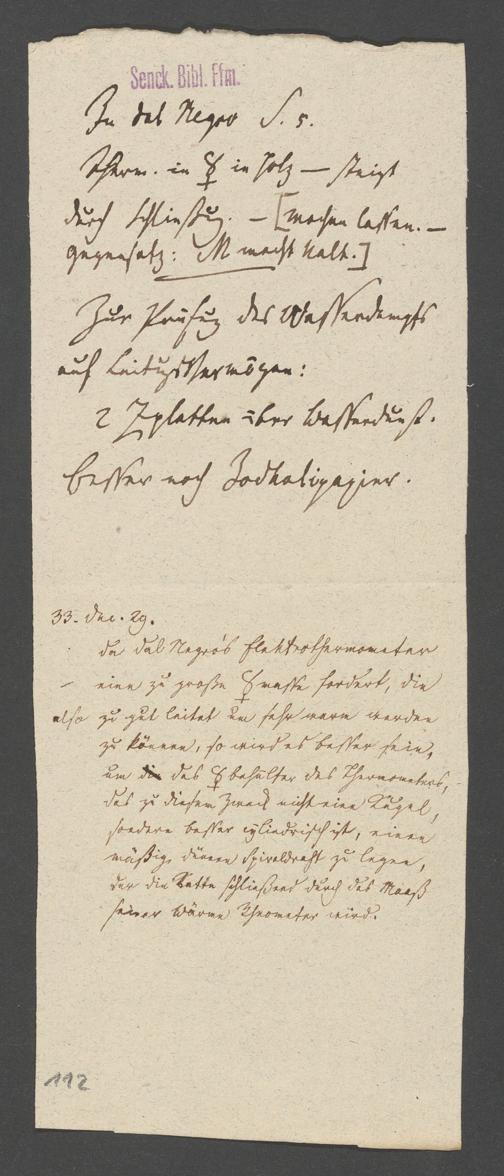 Senck. Bibl. Ffm.
Zu dal Negro S. 5.
Therm. in ☿ in Holz — steigt
durch Schließug. — [machen lassen. —
Gegensatz: M macht kalt.]
Zur Prüfug des Wasserdampfs
auf Leitugsvermögen:
2 Zplatten über Wasserdunst.
besser noch Jodkalipapier.
33. Dec. 29.
da dal Negro's Elektrothermometer
eine zu große ☿masse fordert, die
also zu gut leitet um sehr warm werden
zu können, so wird es besser sein,
um die des ☿behälter des Thermometers,
das zu diesem Zweck nicht eine Kugel,
sondern besser cylindrisch ist, einen
mäßig dünnen Spiraldraht zu legen,
der die Kette schließend durch das Maaß
seiner Wärme Rheometer wird.
112